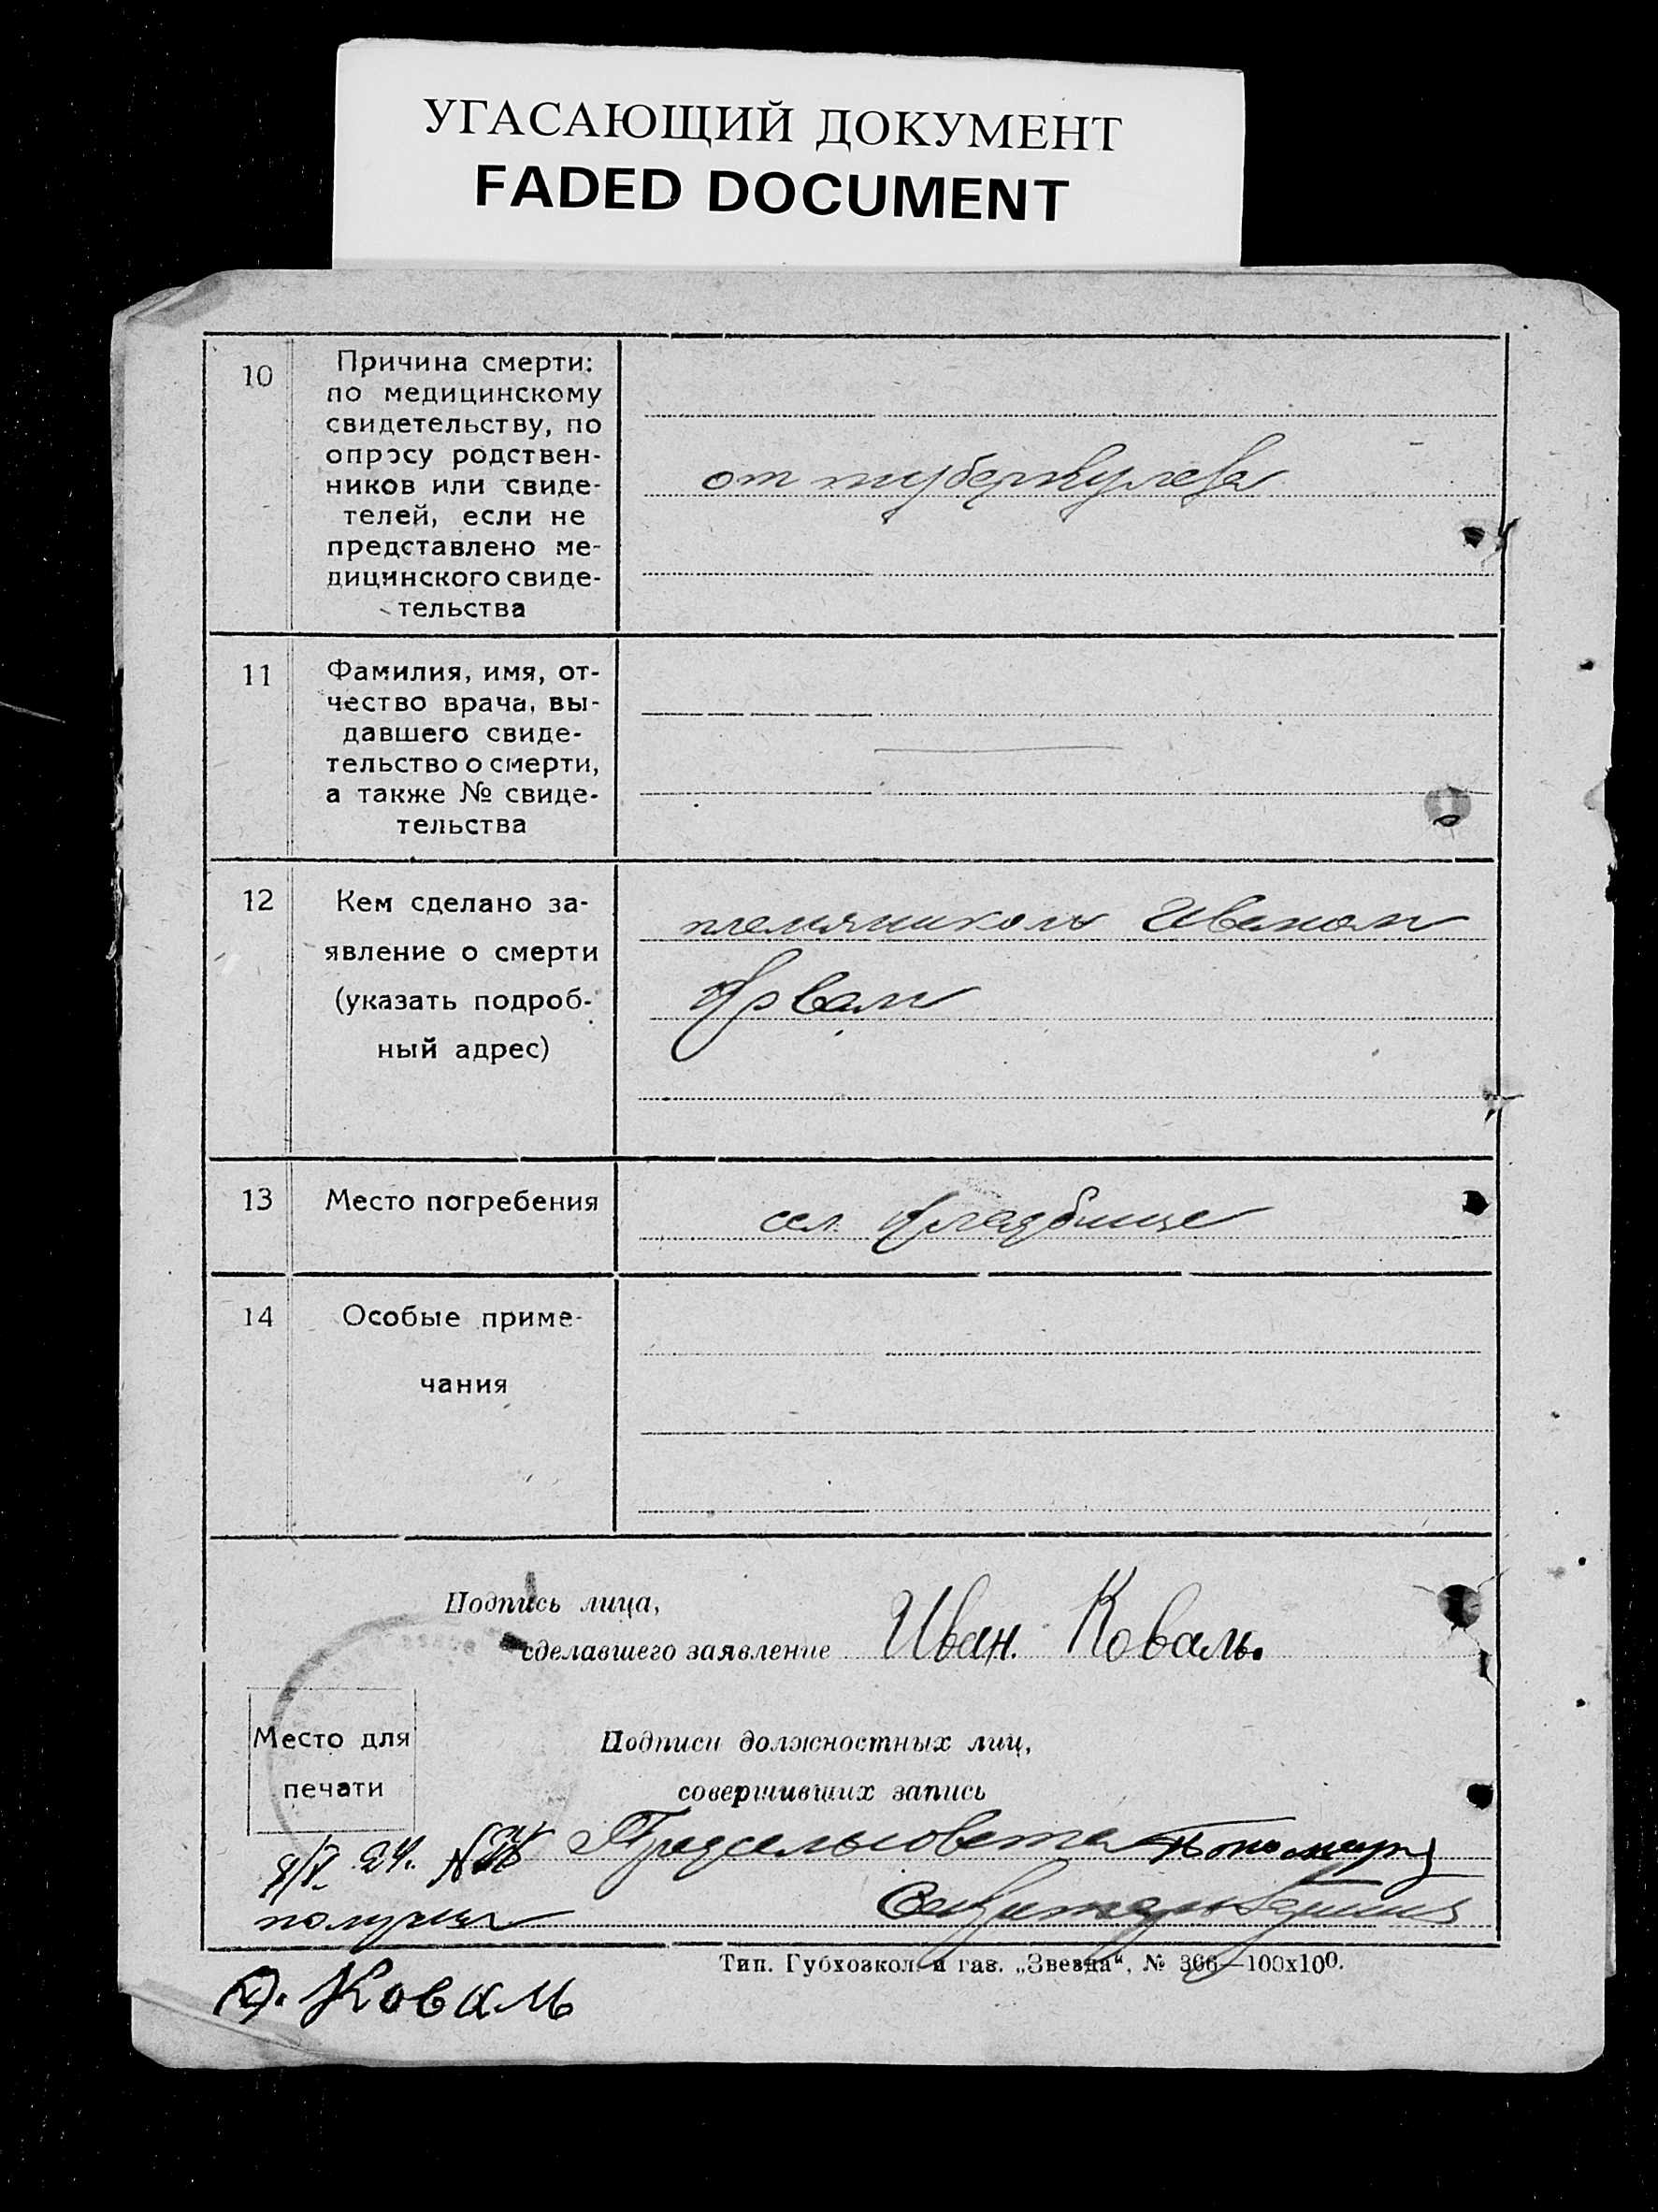 УГАСАЮЩИЙ ДОКУМЕНТ
FADED DOCUMENT
10
Причина смерти:
по медицинскому
свидетельству, по
опросу родствен-
ников или свиде-
телей, если не
представлено ме-
дицинского свиде-
тельства
от туберкулеза
11
Фамилия, имя, от-
чество врача, вы-
давшего свиде-
тельство о смерти,
а также № свиде-
тельства
12
Кем сделано за-
явление о смерти
(указать подроб-
ный адрес)
племянником Иваном
13
Место погребения
сел. кладбище
14
Особые приме-
чания
Подпись лица,
сделавшего заявление Иван. Коваль.
Место для
печати
Подписи должностных лиц,
совершивших запись
24. Предсельсовета
получил Секретарь
Тип. Губхозкол. и газ. „Звезда“, № 366—100х100.
Коваль